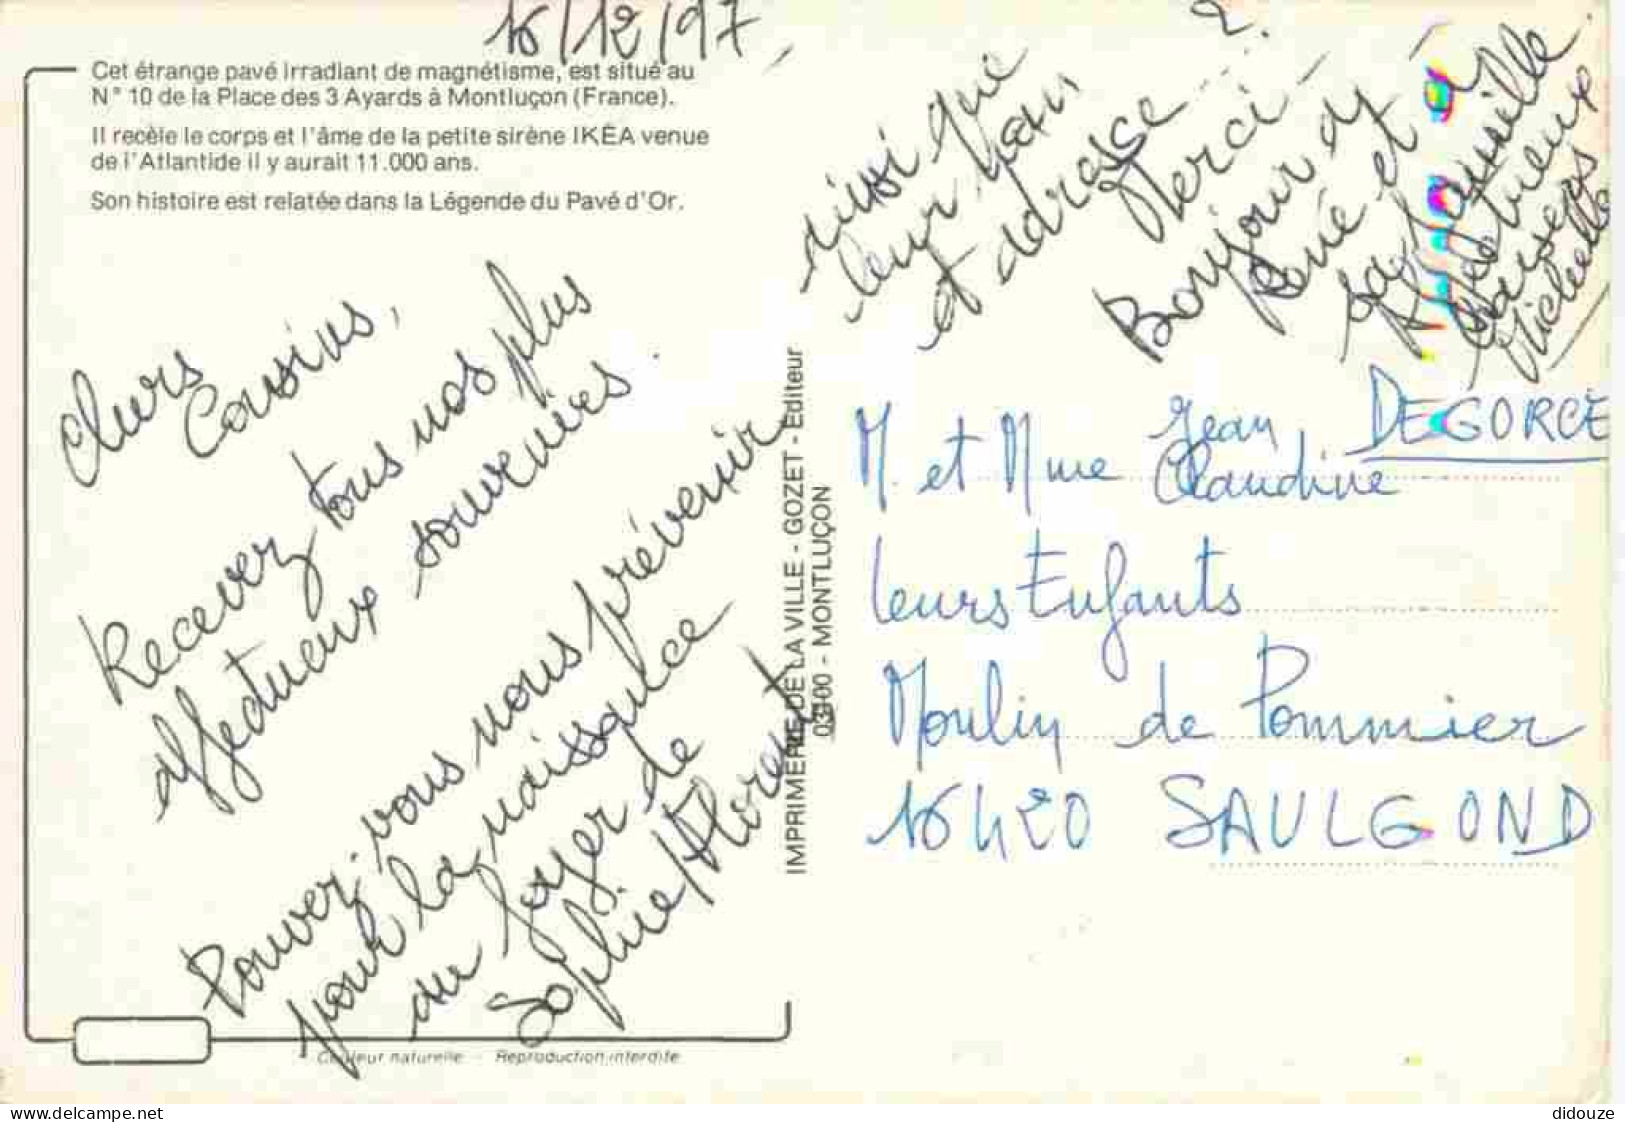 16/12/97
Cet étrange pavé irradiant de magnétisme, est situé au
N° 10 de la Place des 3 Ayards à Montluçon (France).
Il recèle le corps et l'âme de la petite sirène IKÉA venue
de l'Atlantide il y aurait 11.000 ans.
Son histoire est relatée dans la Légende du Pavé d'Or.
Chers
Cousins,
Recevez tous nos plus
affectueux souvenirs.
Pouvez-vous nous prévenir
pour la naissance
au foyer de
Sophie/Florent
ainsi que
leur nom
et adresse ?
Merci -
Bonjour à
René et à
sa famille
Affectueux
baisers
Michelle
IMPRIMERIE DE LA VILLE - GOZET - Editeur
03100 - MONTLUÇON
M. et Mme Jean DEGORCE
Claudine
leurs Enfants
Moulin de Pommier
16420 SAULGOND
Couleur naturelle - Reproduction interdite
delcampe.net
didouze